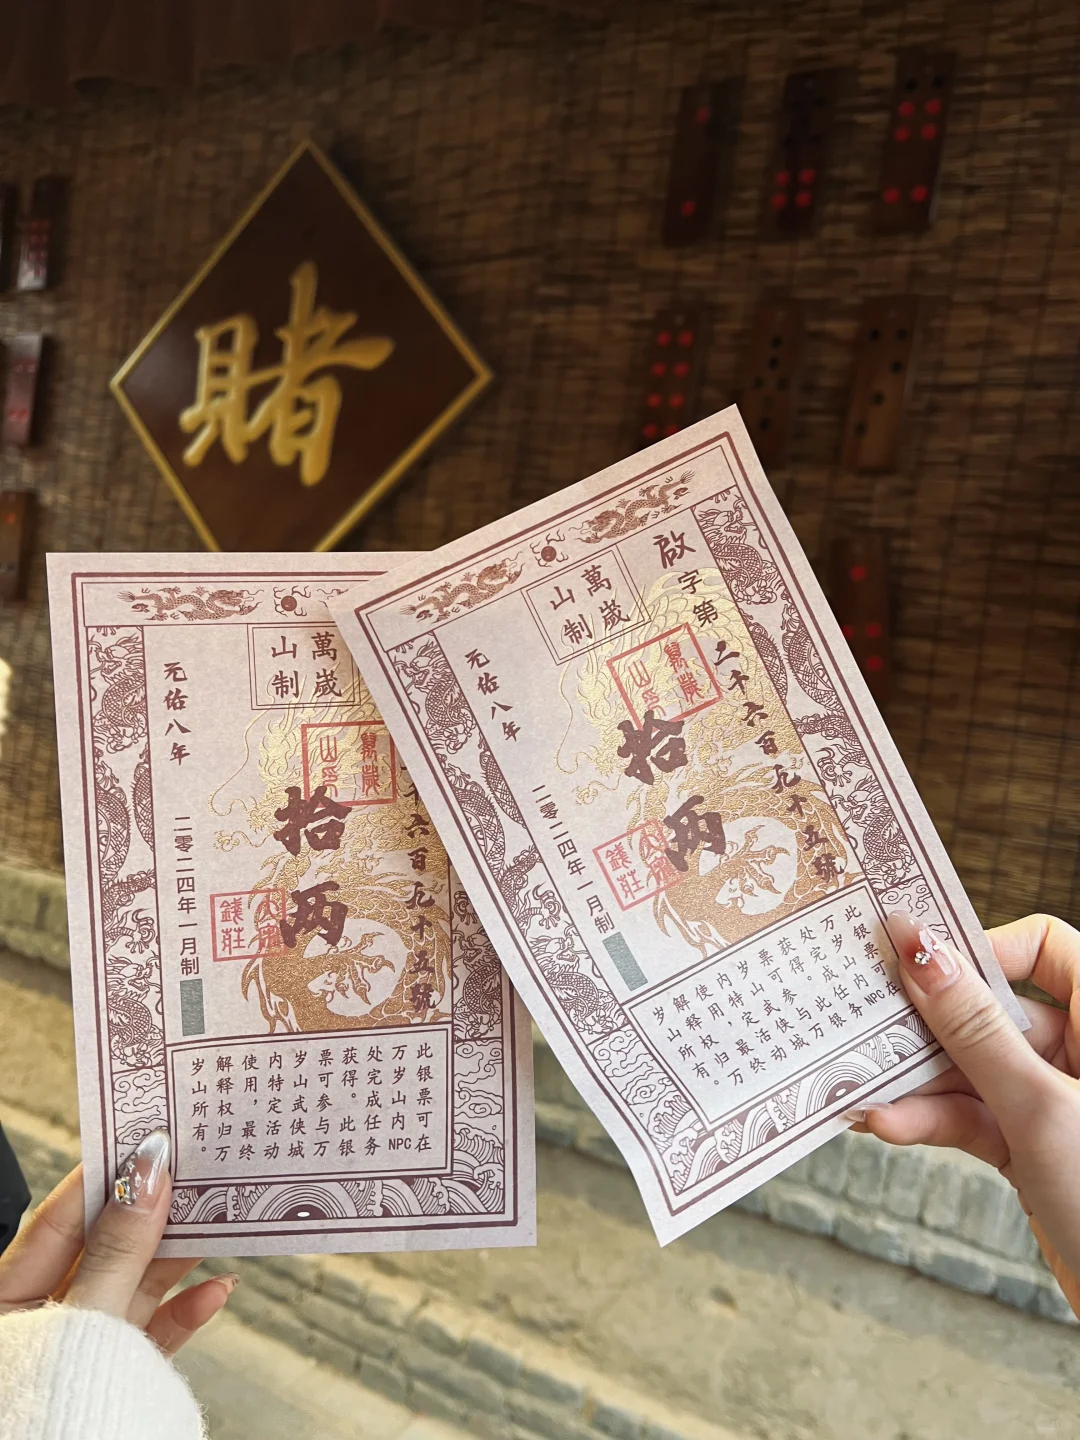 賭
萬歲
山制
元佑八年
二零二四年一月制
拾两
六百九十五號
錢莊
此银票可在
万岁山内NPC
处完成任务
获得。此银
票可参与万
岁山武侠城
内特定活动
使用，最终
解释权归万
岁山所有。
啟字第二千六百九十五號
萬歲
山制
元佑八年
二零二四年一月制
拾两
錢莊
此银票可在
万岁山内NPC
处完成任务
获得。此银
票可参与万
岁山武侠城
内特定活动
使用，最终
解释权归万
岁山所有。